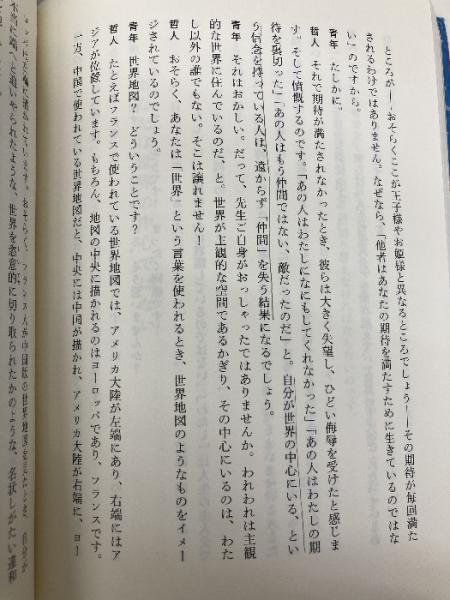 ところが――おそらくここが王子様やお姫様と異なるところでしょう――その期待が毎回満た
されるわけではありません。なぜなら、「他者はあなたの期待を満たすために生きているのではな
い」のですから。
青年　たしかに。
哲人　それで期待が満たされなかったとき、彼らは大きく失望し、ひどい侮辱を受けたと感じま
す。そして憤慨するのです。「あの人はわたしになにもしてくれなかった」「あの人はわたしの期
待を裏切った」「あの人はもう仲間ではない、敵だったのだ」と。自分が世界の中心にいる、とい
う信念を持っている人は、遠からず「仲間」を失う結果になるでしょう。
青年　それはおかしい。だって、先生ご自身がおっしゃったではありませんか。われわれは主観
的な世界に住んでいるのだ、と。世界が主観的な空間であるかぎり、その中心にいるのは、わた
し以外の誰でもない。そこは譲れません！
哲人　おそらく、あなたは「世界」という言葉を使われるとき、世界地図のようなものをイメー
ジされているのでしょう。
青年　世界地図？　どういうことです？
哲人　たとえばフランスで使われている世界地図では、アメリカ大陸が左端にあり、右端にはア
ジアが位置しています。もちろん、地図の中央に描かれるのはヨーロッパであり、フランスです。
一方、中国で使われている世界地図だと、中央には中国が描かれ、アメリカ大陸が右端に、ヨー
おそらく、フランス人が中国版の世界地図を見たとき、自分が
追いやられたような、世界を恣意的に切り取られたかのような、名状しがたい違和